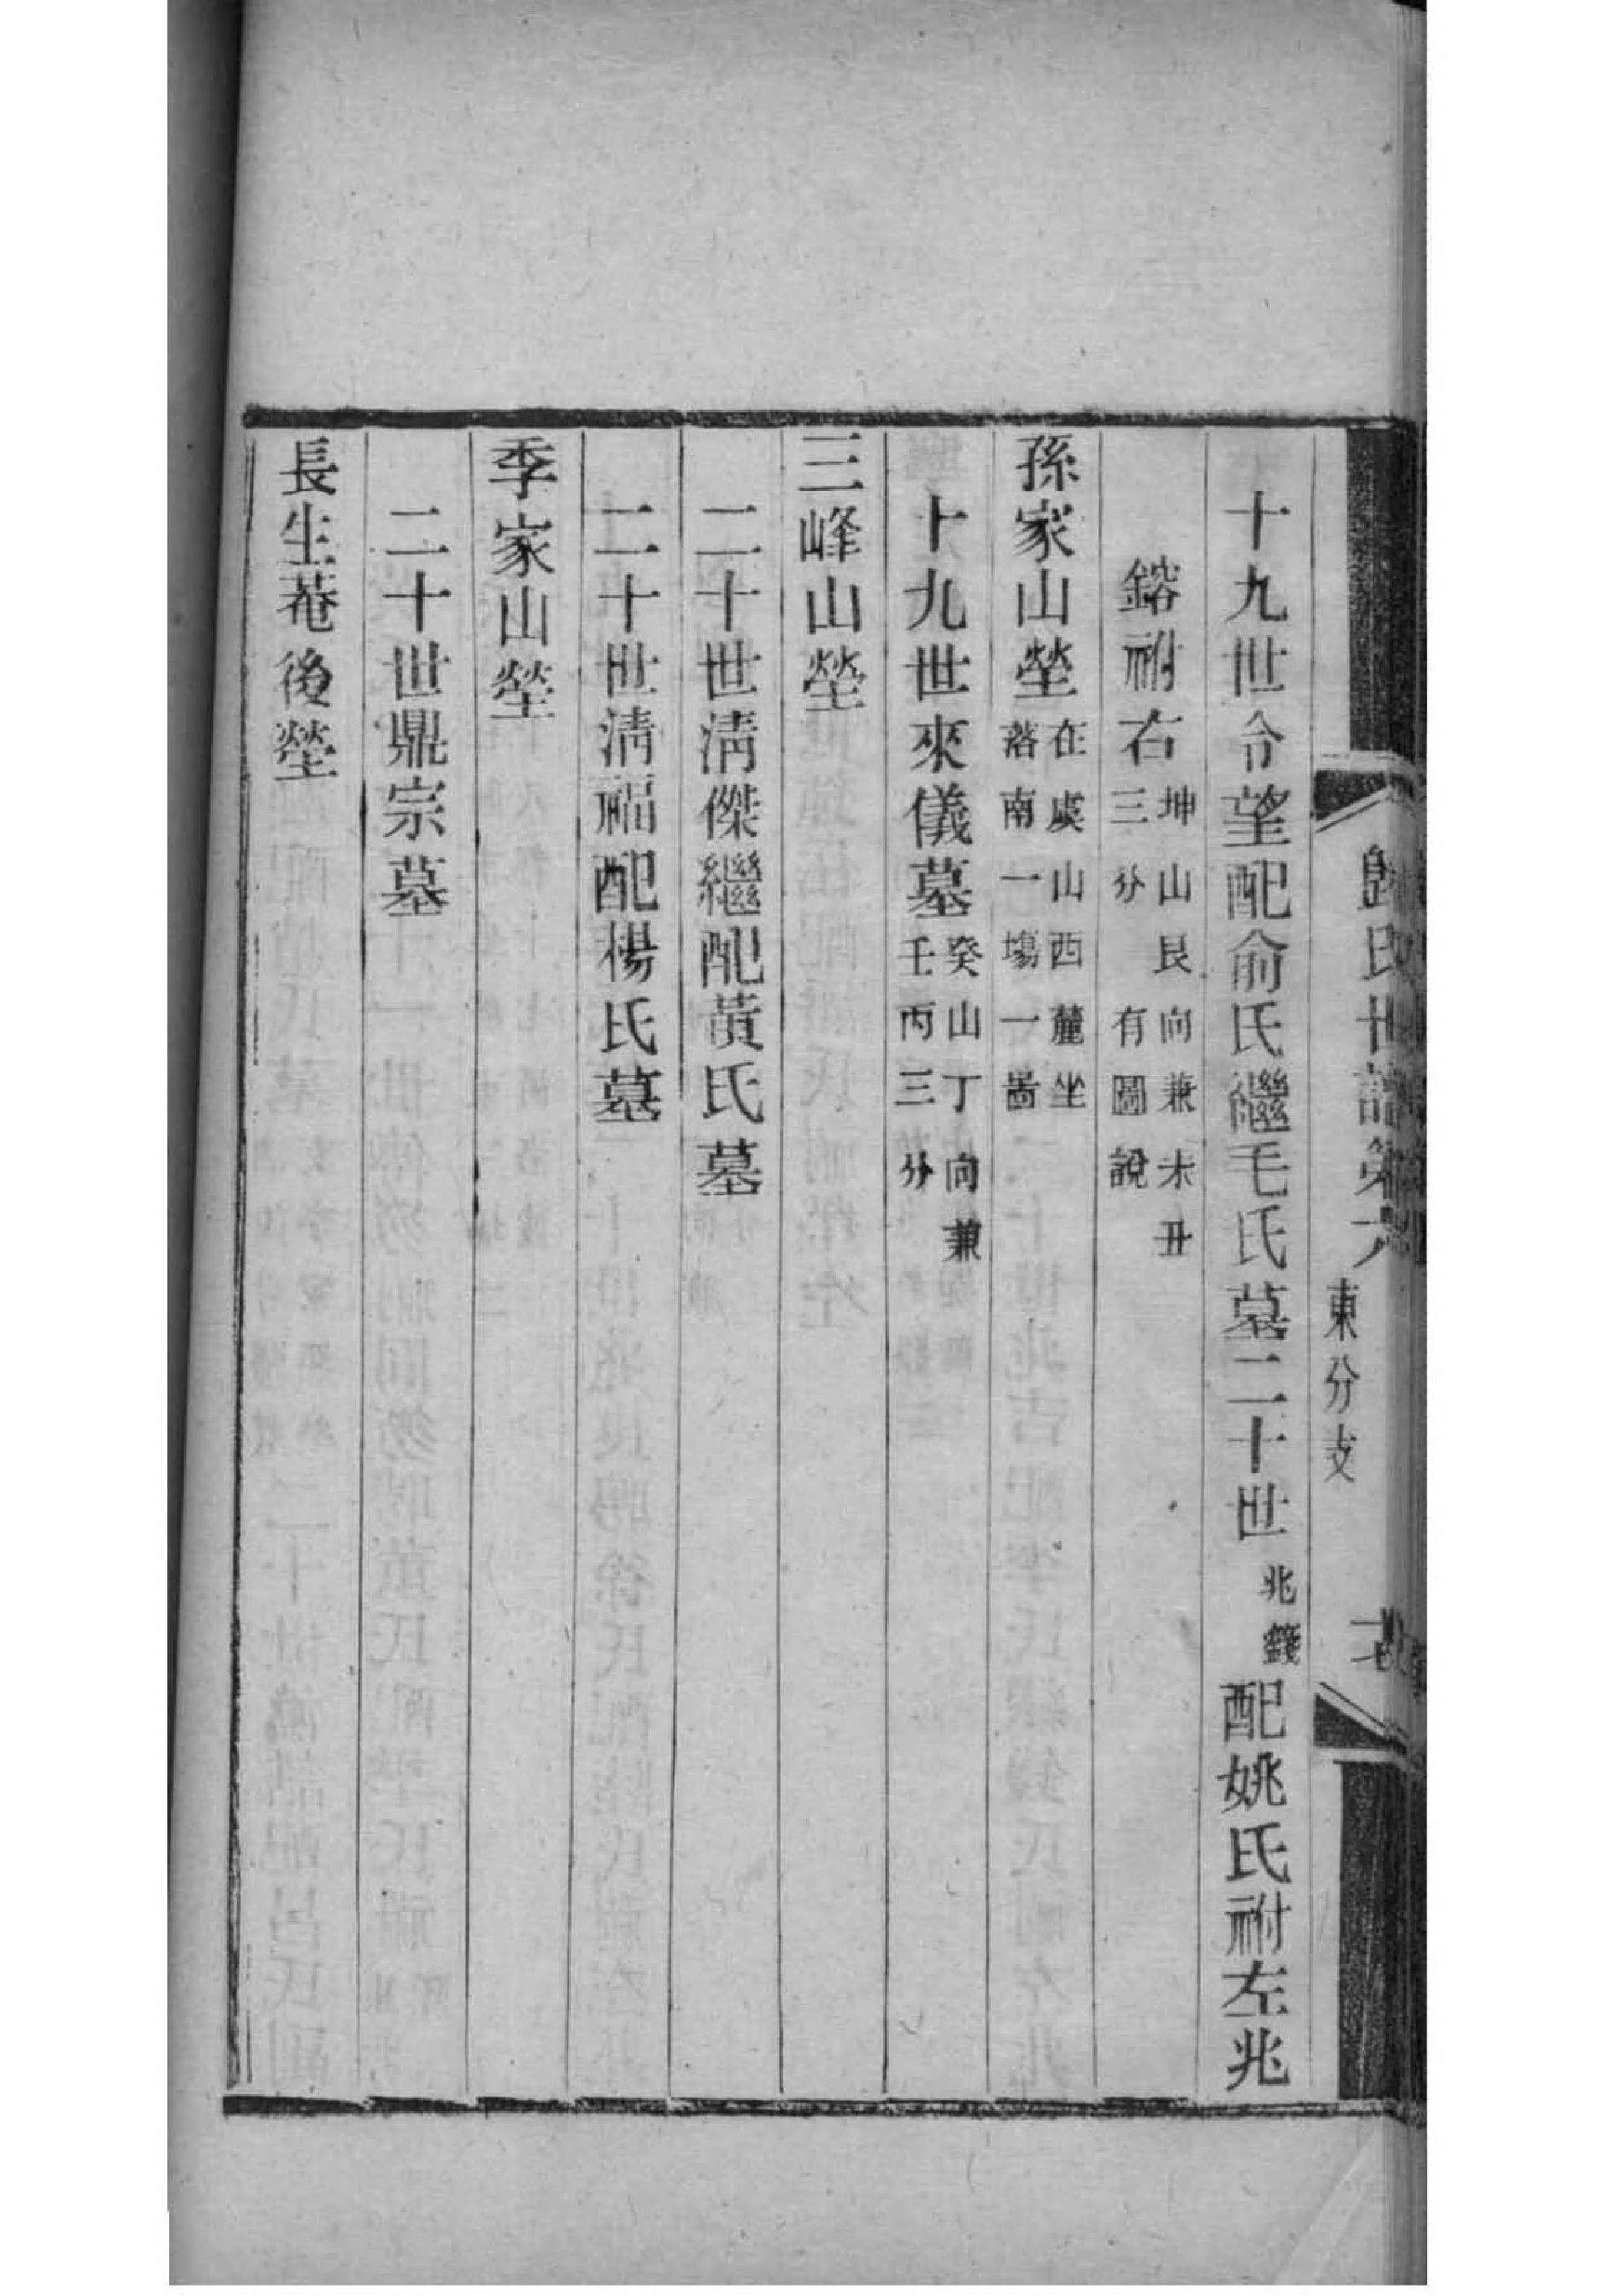 歸氏世譜第六 東分支
十九世令望配俞氏繼毛氏墓二十世兆籛配姚氏祔左兆
鎔祔右坤山艮向兼未丑三分 有圖說
孫家山塋在虞山西麓坐落南一塲一啚
十九世來儀墓癸山丁向兼壬丙三分
三峰山塋
二十世淸傑繼配黃氏墓
二十世淸福配楊氏墓
季家山塋
二十世鼎宗墓
長生菴後塋